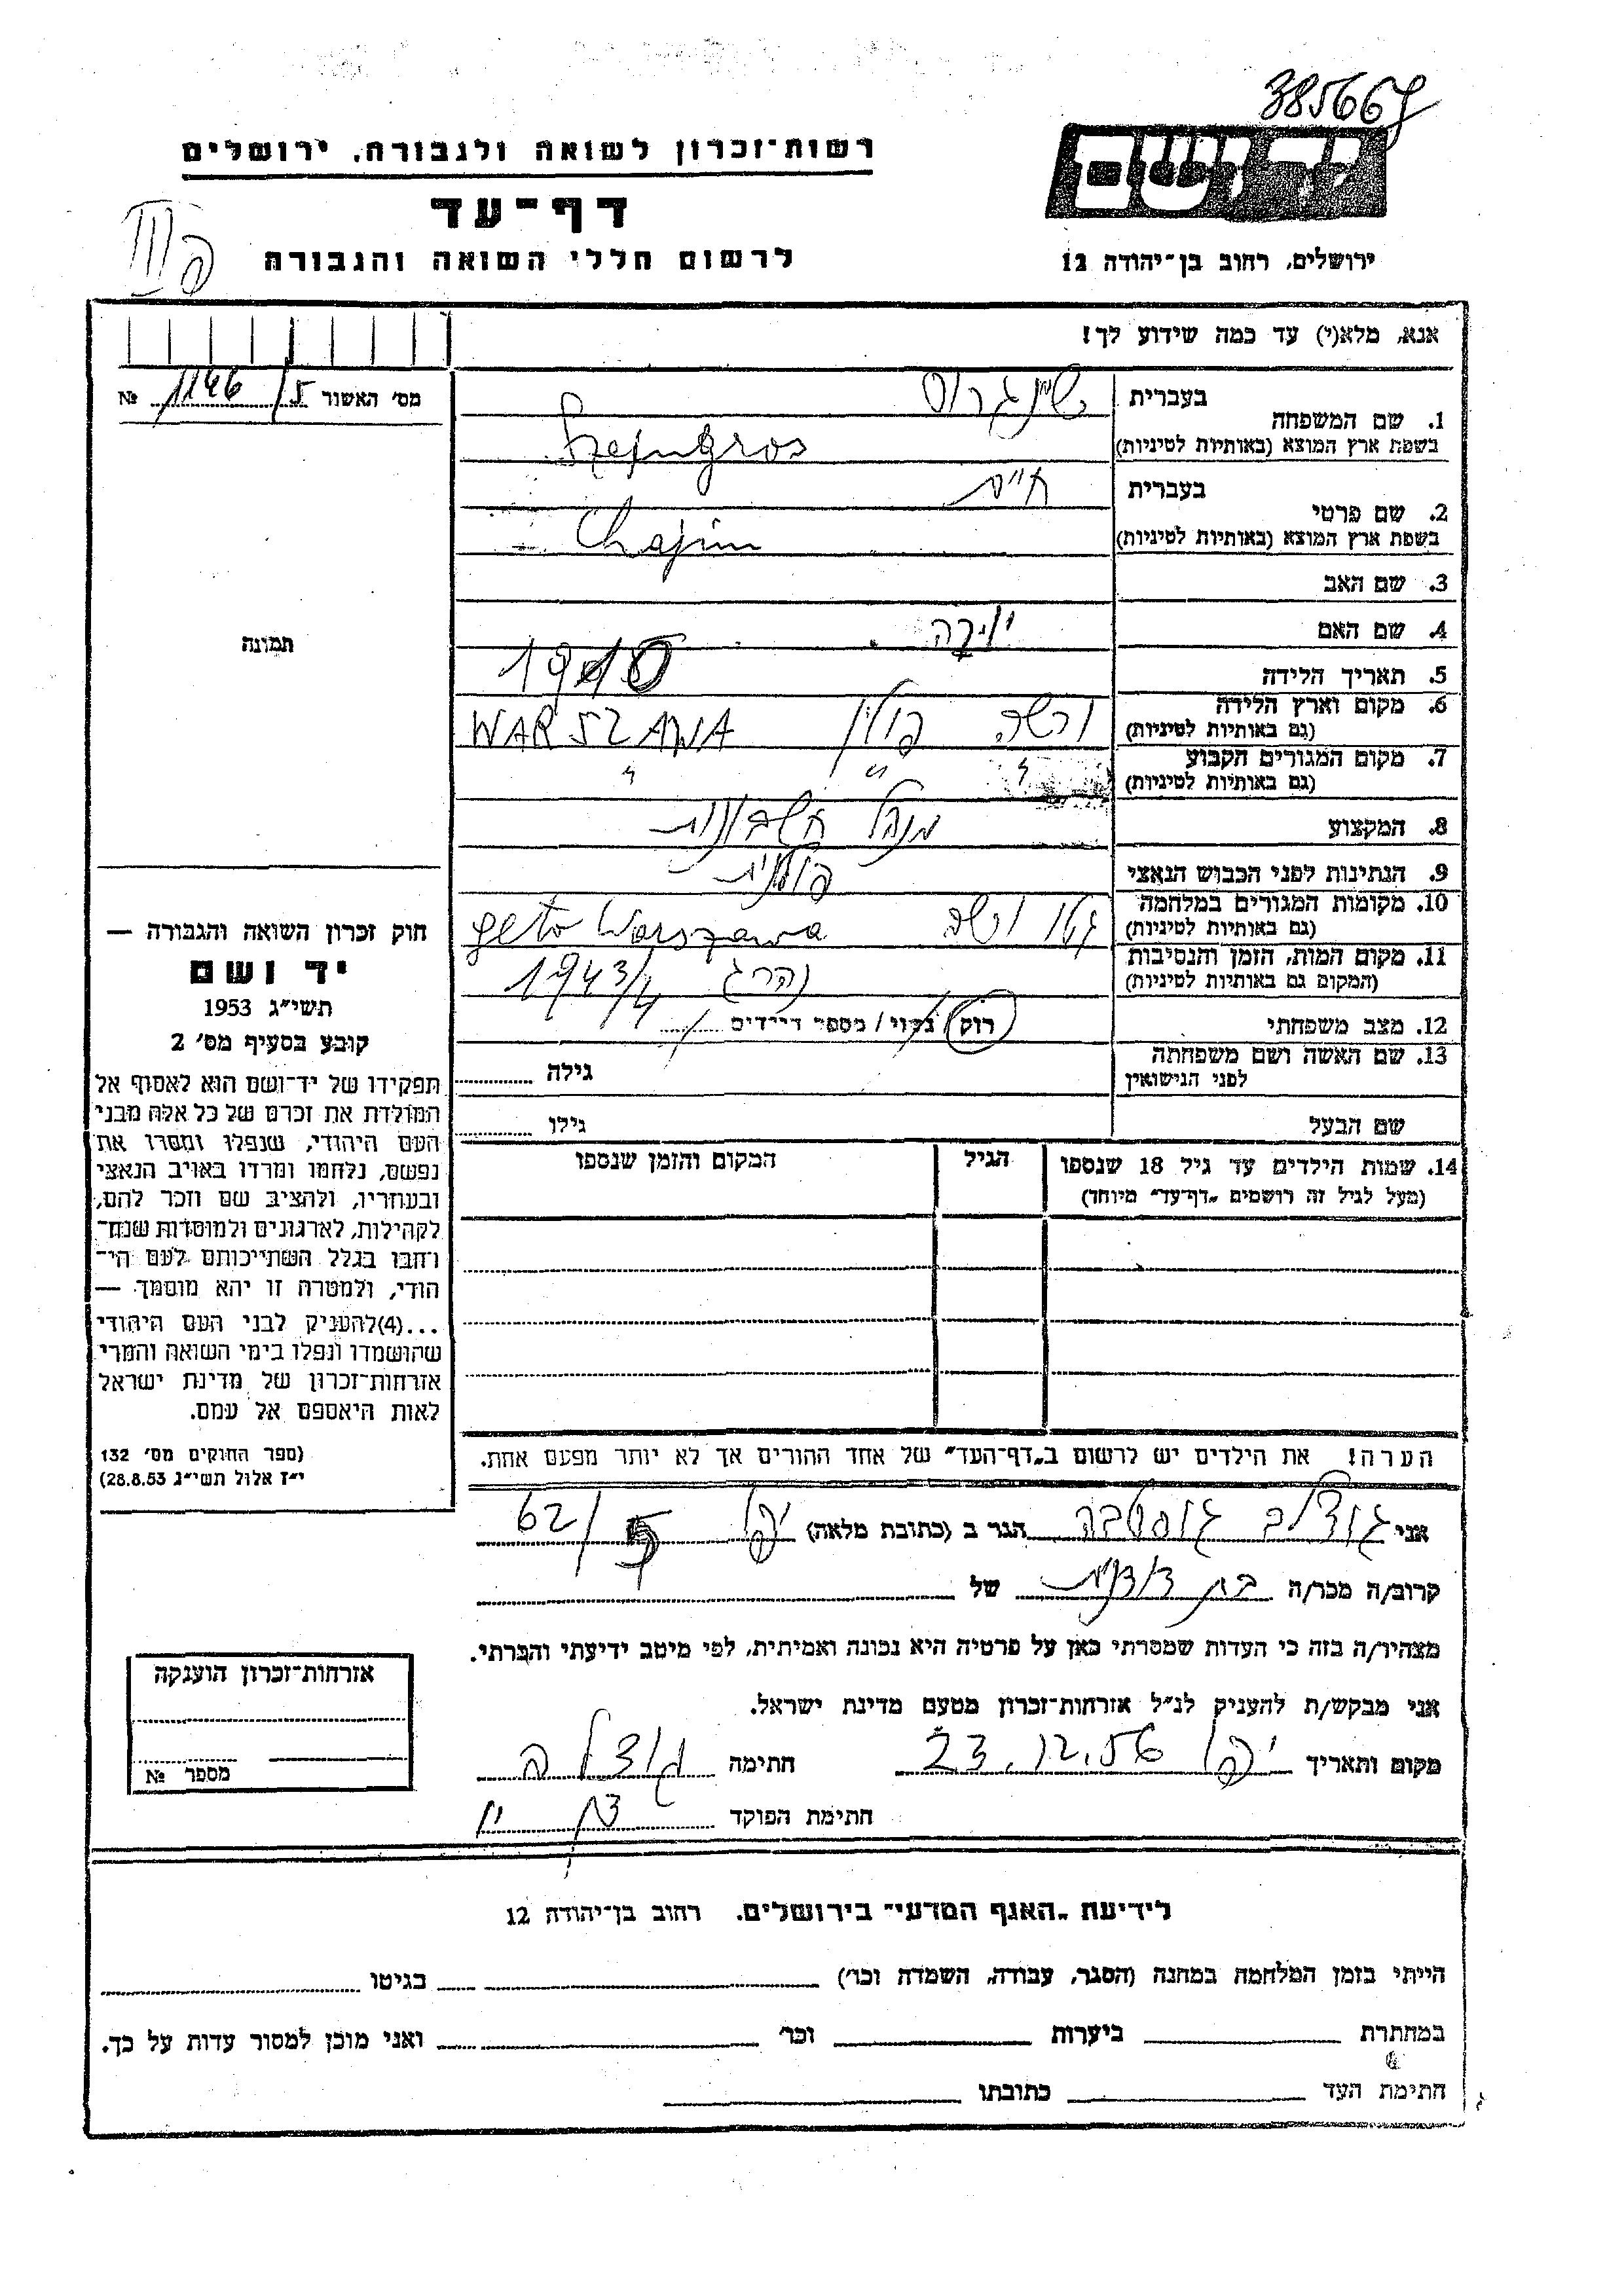 385667
רשות־זכרון לשואה ולגבורה, ירושלים
יד ושם
דף־עד
לרשום חללי השואה והגבורה
ירושלים, רחוב בן־יהודה 12
אנא, מלא(י) עד כמה שידוע לך!
מס' האשור 1146/5 №
1. שם המשפחה
בעברית שיינגרוס
בשפת ארץ המוצא (באותיות לטיניות) Szejngros
2. שם פרטי
בעברית חיים
בשפת ארץ המוצא (באותיות לטיניות) Chajim
3. שם האב
4. שם האם
5. תאריך הלידה
6. מקום וארץ הלידה
(גם באותיות לטיניות) ורשה פולין WARSZAWA
7. מקום המגורים הקבוע
(גם באותיות לטיניות) " " "
8. המקצוע מנהל חשבונות
9. הנתינות לפני הכבוש הנאצי פולנית
10. מקומות המגורים במלחמה
(גם באותיות לטיניות) גטו ורשה geto Warszawa
11. מקום המות, הזמן והנסיבות
(המקום גם באותיות לטיניות) נהרג 1943/4
12. מצב משפחתי רוק / נשוי / מספר הילדים
13. שם האשה ושם משפחתה
לפני הנישואין גילה
שם הבעל גילו
14. שמות הילדים עד גיל 18 שנספו
(מעל לגיל זה רושמים "דף־עד" מיוחד)
הגיל
המקום והזמן שנספו
הערה! את הילדים יש לרשום ב"דף־העד" של אחד ההורים אך לא יותר מפעם אחת.
תמונה
חוק זכרון השואה והגבורה —
יד ושם
תשי"ג 1953
קובע בסעיף מס' 2
תפקידו של יד־ושם הוא לאסוף אל
המולדת את זכרם של כל אלה מבני
העם היהודי, שנפלו ומסרו את
נפשם, נלחמו ומרדו באויב הנאצי
ובעוזריו, ולהציב שם וזכר להם,
לקהילות, לארגונים ולמוסדות שנח־
רחבו בגלל השתייכותם לעם הי־
הודי, ולמטרה זו יהא מוסמך —
...(4)להעניק לבני העם היהודי
שהושמדו ונפלו בימי השואה והמרי
אזרחות־זכרון של מדינת ישראל
לאות היאספם אל עמם.
(ספר החוקים מס' 132
י"ז אלול תשי"ג 28.8.53)
אני גודלב גוסטבה הגר ב (כתובת מלאה) יפו 62/5
קרוב/ה מכר/ה בת דודנית של
מצהיר/ה בזה כי העדות שמסרתי כאן על פרטיה היא נכונה ואמיתית, לפי מיטב ידיעתי והכרתי.
אני מבקש/ת להעניק לנ"ל אזרחות־זכרון מטעם מדינת ישראל.
מקום ותאריך יפו 23.12.56 חתימה
חתימת הפוקד
אזרחות־זכרון הוענקה
מספר №
לידיעת "האגף המדעי" בירושלים, רחוב בן־יהודה 12
הייתי בזמן המלחמה במחנה (הסגר, עבודה, השמדה וכו') בגיטו
במחתרת ביערות וכו' ואני מוכן למסור עדות על כך.
חתימת העד כתובתו